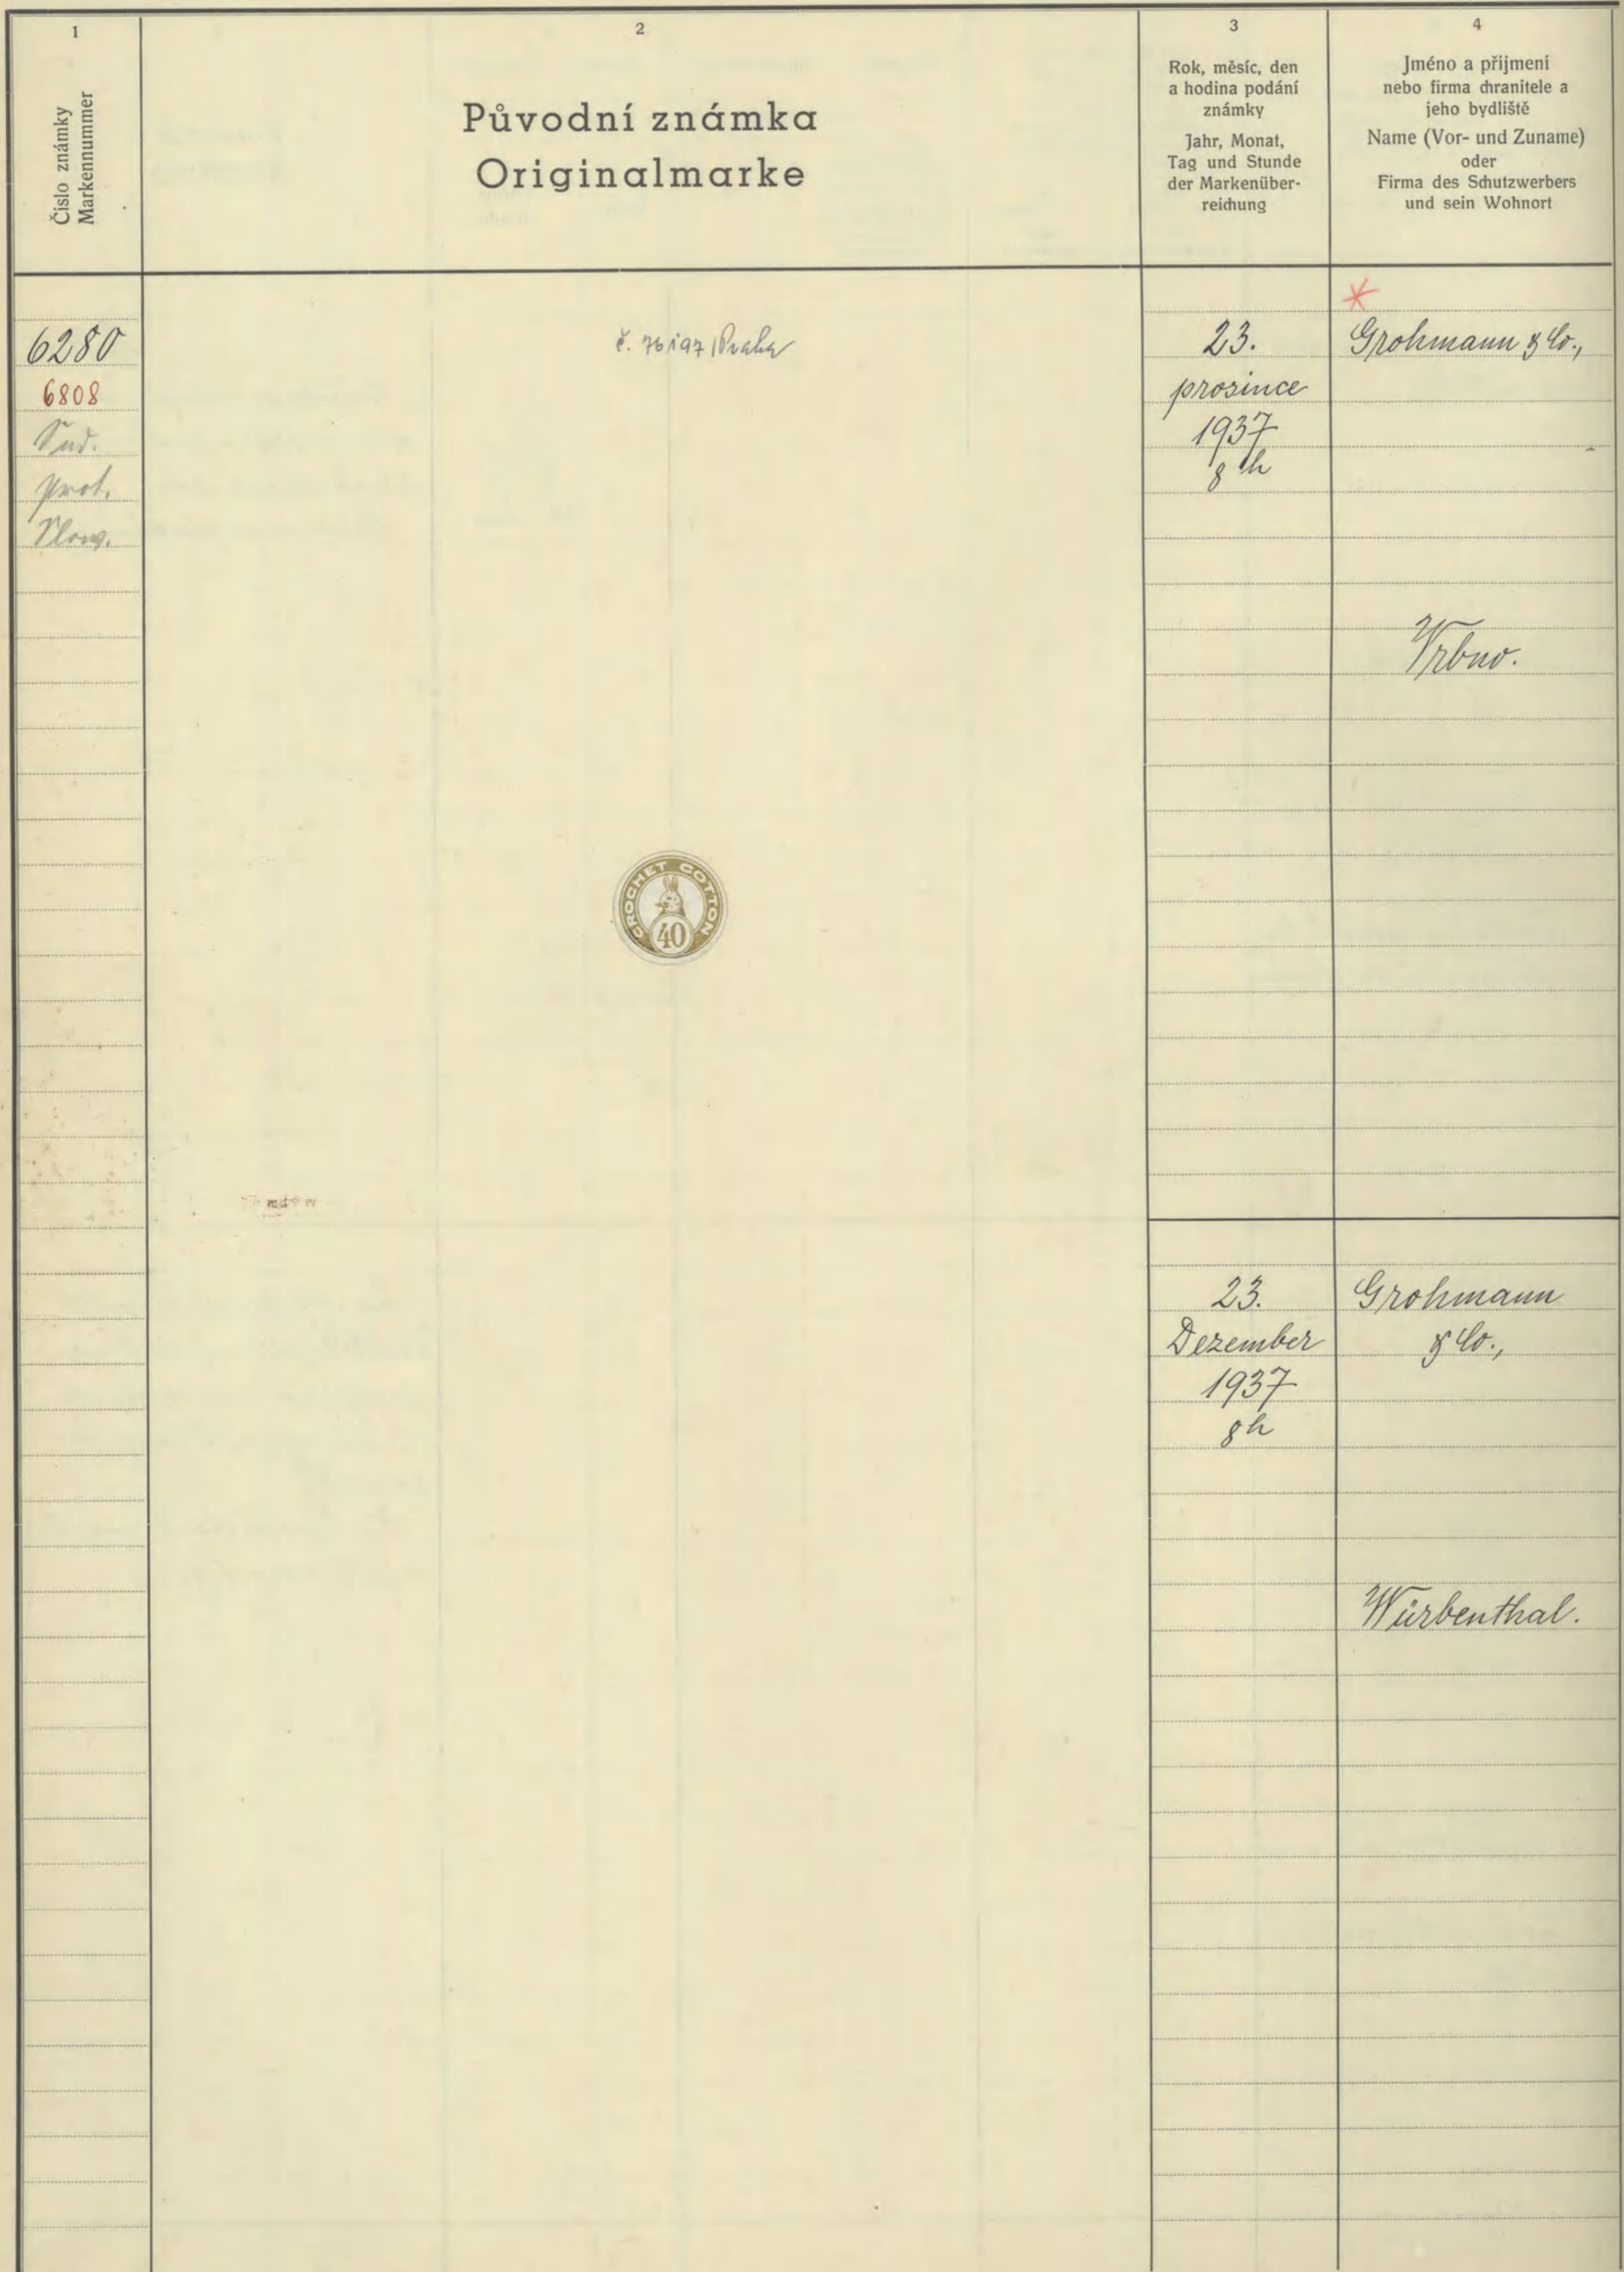 1
Číslo známky
Markennummer
2
Původní známka
Originalmarke
3
Rok, měsíc, den
a hodina podání
známky
Jahr, Monat,
Tag und Stunde
der Markenüber-
reichung
4
Jméno a příjmení
nebo firma chranitele a
jeho bydliště
Name (Vor- und Zuname)
oder
Firma des Schutzwerbers
und sein Wohnort
6280
6808
Sud.
Prot.
Slow.
č. 76197 Praha
CROCHET COTTON
40
23.
prosince
1937
8 h
Grohmann & Co.,
Vrbno.
23.
Dezember
1937
8h
Grohmann
& Co.,
Würbenthal.